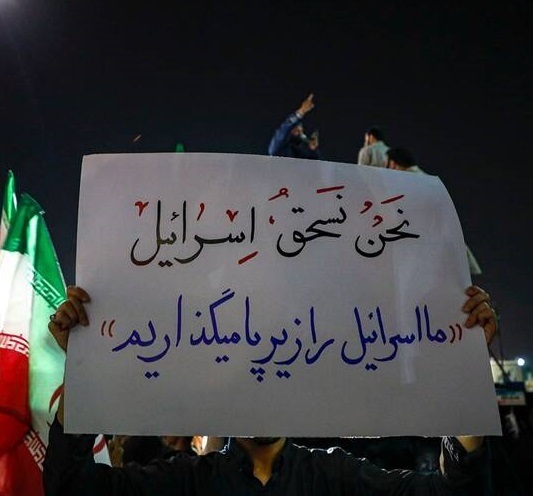 نَحْنُ نَسْحَقُ إِسْرائيل
«ما اسرائیل را زیر پا میگذاریم»